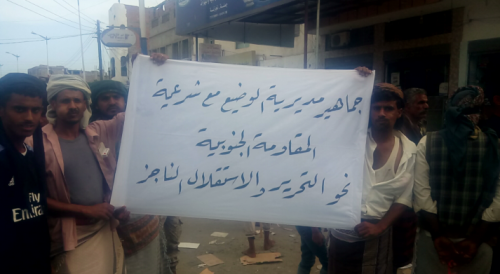 جماهير مديرية الوضيع مع شرعية
المقاومة الجنوبية
نحو التحرير والاستقلال الناجز
Fly
Emirates